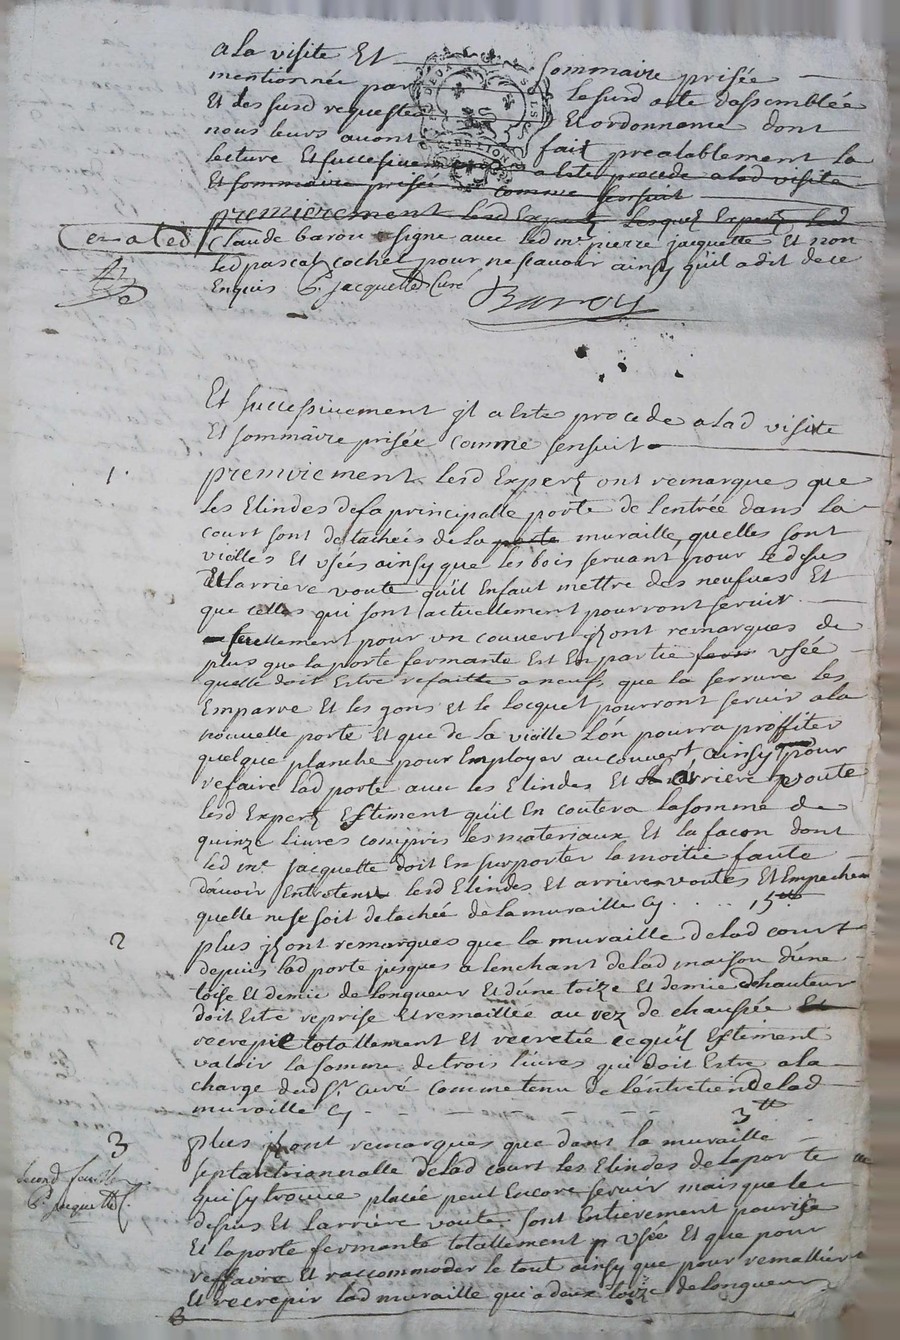 a la visite Et sommaire prisée
mentionnée par lesusd acte dassemblée
Et les susd requestes Et ordonnance dont
nous leurs avons fait prealablement la
lecture Et successivement a este procede a lad visite
Et sommaire prisée comme sensuit
premierement lesd Expertz lesquelz Expertz led
Claude baron signe avec led mre pierre jacquette Et non
led pascal cochet pour ne scavoir ainsy quil a dit de ce
Enquis P. Jacquette Curé
Baron
Et successivement jl a este procede a lad visite
Et sommaire prisée comme sensuit
1.
premierement lesd Expertz ont remarques que
les Elindes de la principalle porte de lentrée dans la
court sont detachées de la porte muraille, quelles sont
vielles Et usées ainsy que les bois servant pour le desus
Et larriere voute quil En faut mettre des neufves Et
que celles qui sont actuellement pourront servir
seullement pour un couvert jlz ont remarques de
plus que la porte fermante Est En partie usée
quelle doit Estre refaitte a neuf, que la serrure les
Emparre Et les gons et le locquet pourront servir a la
nouvelle porte Et que de la vielle lon pourra proffiter
quelque planche pour Employer au couvert, ainsy pour
refaire lad porte avec les Elindes Et arriere voute
lesd Expertz Estiment quil En coutera la somme de
quinze livres compris les materiaux Et la façon dont
led mre jacquette doit En suporter la moitié faute
davoir Entretenu lesd Elindes Et arrieres voutes Et Empecher
quelle ne se soit detachée de la muraille Cy .... 15tt
2
plus jlz ont remarques que la muraille de lad court
depuis lad porte jusques a lenchant de lad maison dune
toise Et demie de longueur Et dune toize Et demie de hauteur
doit Este reprise Et remaillée au rez de chausée Et
recrepie totallement Et recretée ce quilz Estiment
valoir la somme de trois livres qui doit Estre a la
charge dud Sr Curé Comme tenu de lentretien de lad
muraille Cy - - - - - 3tt
3
plus jlz ont remarques que dans la muraille
septantrionnalle de lad court les Elindes de la porte
qui sy trouve placée peut Encore servir mais que le
desus Et larriere voute sont Entierement pourrie
Et la porte fermante totallement usée Et que pour
reffaire Et raccommoder le tout ainsy que pour remallier
Et recrepir lad muraille qui a deux toize de longueur
second feuille
P. Jacquette C.